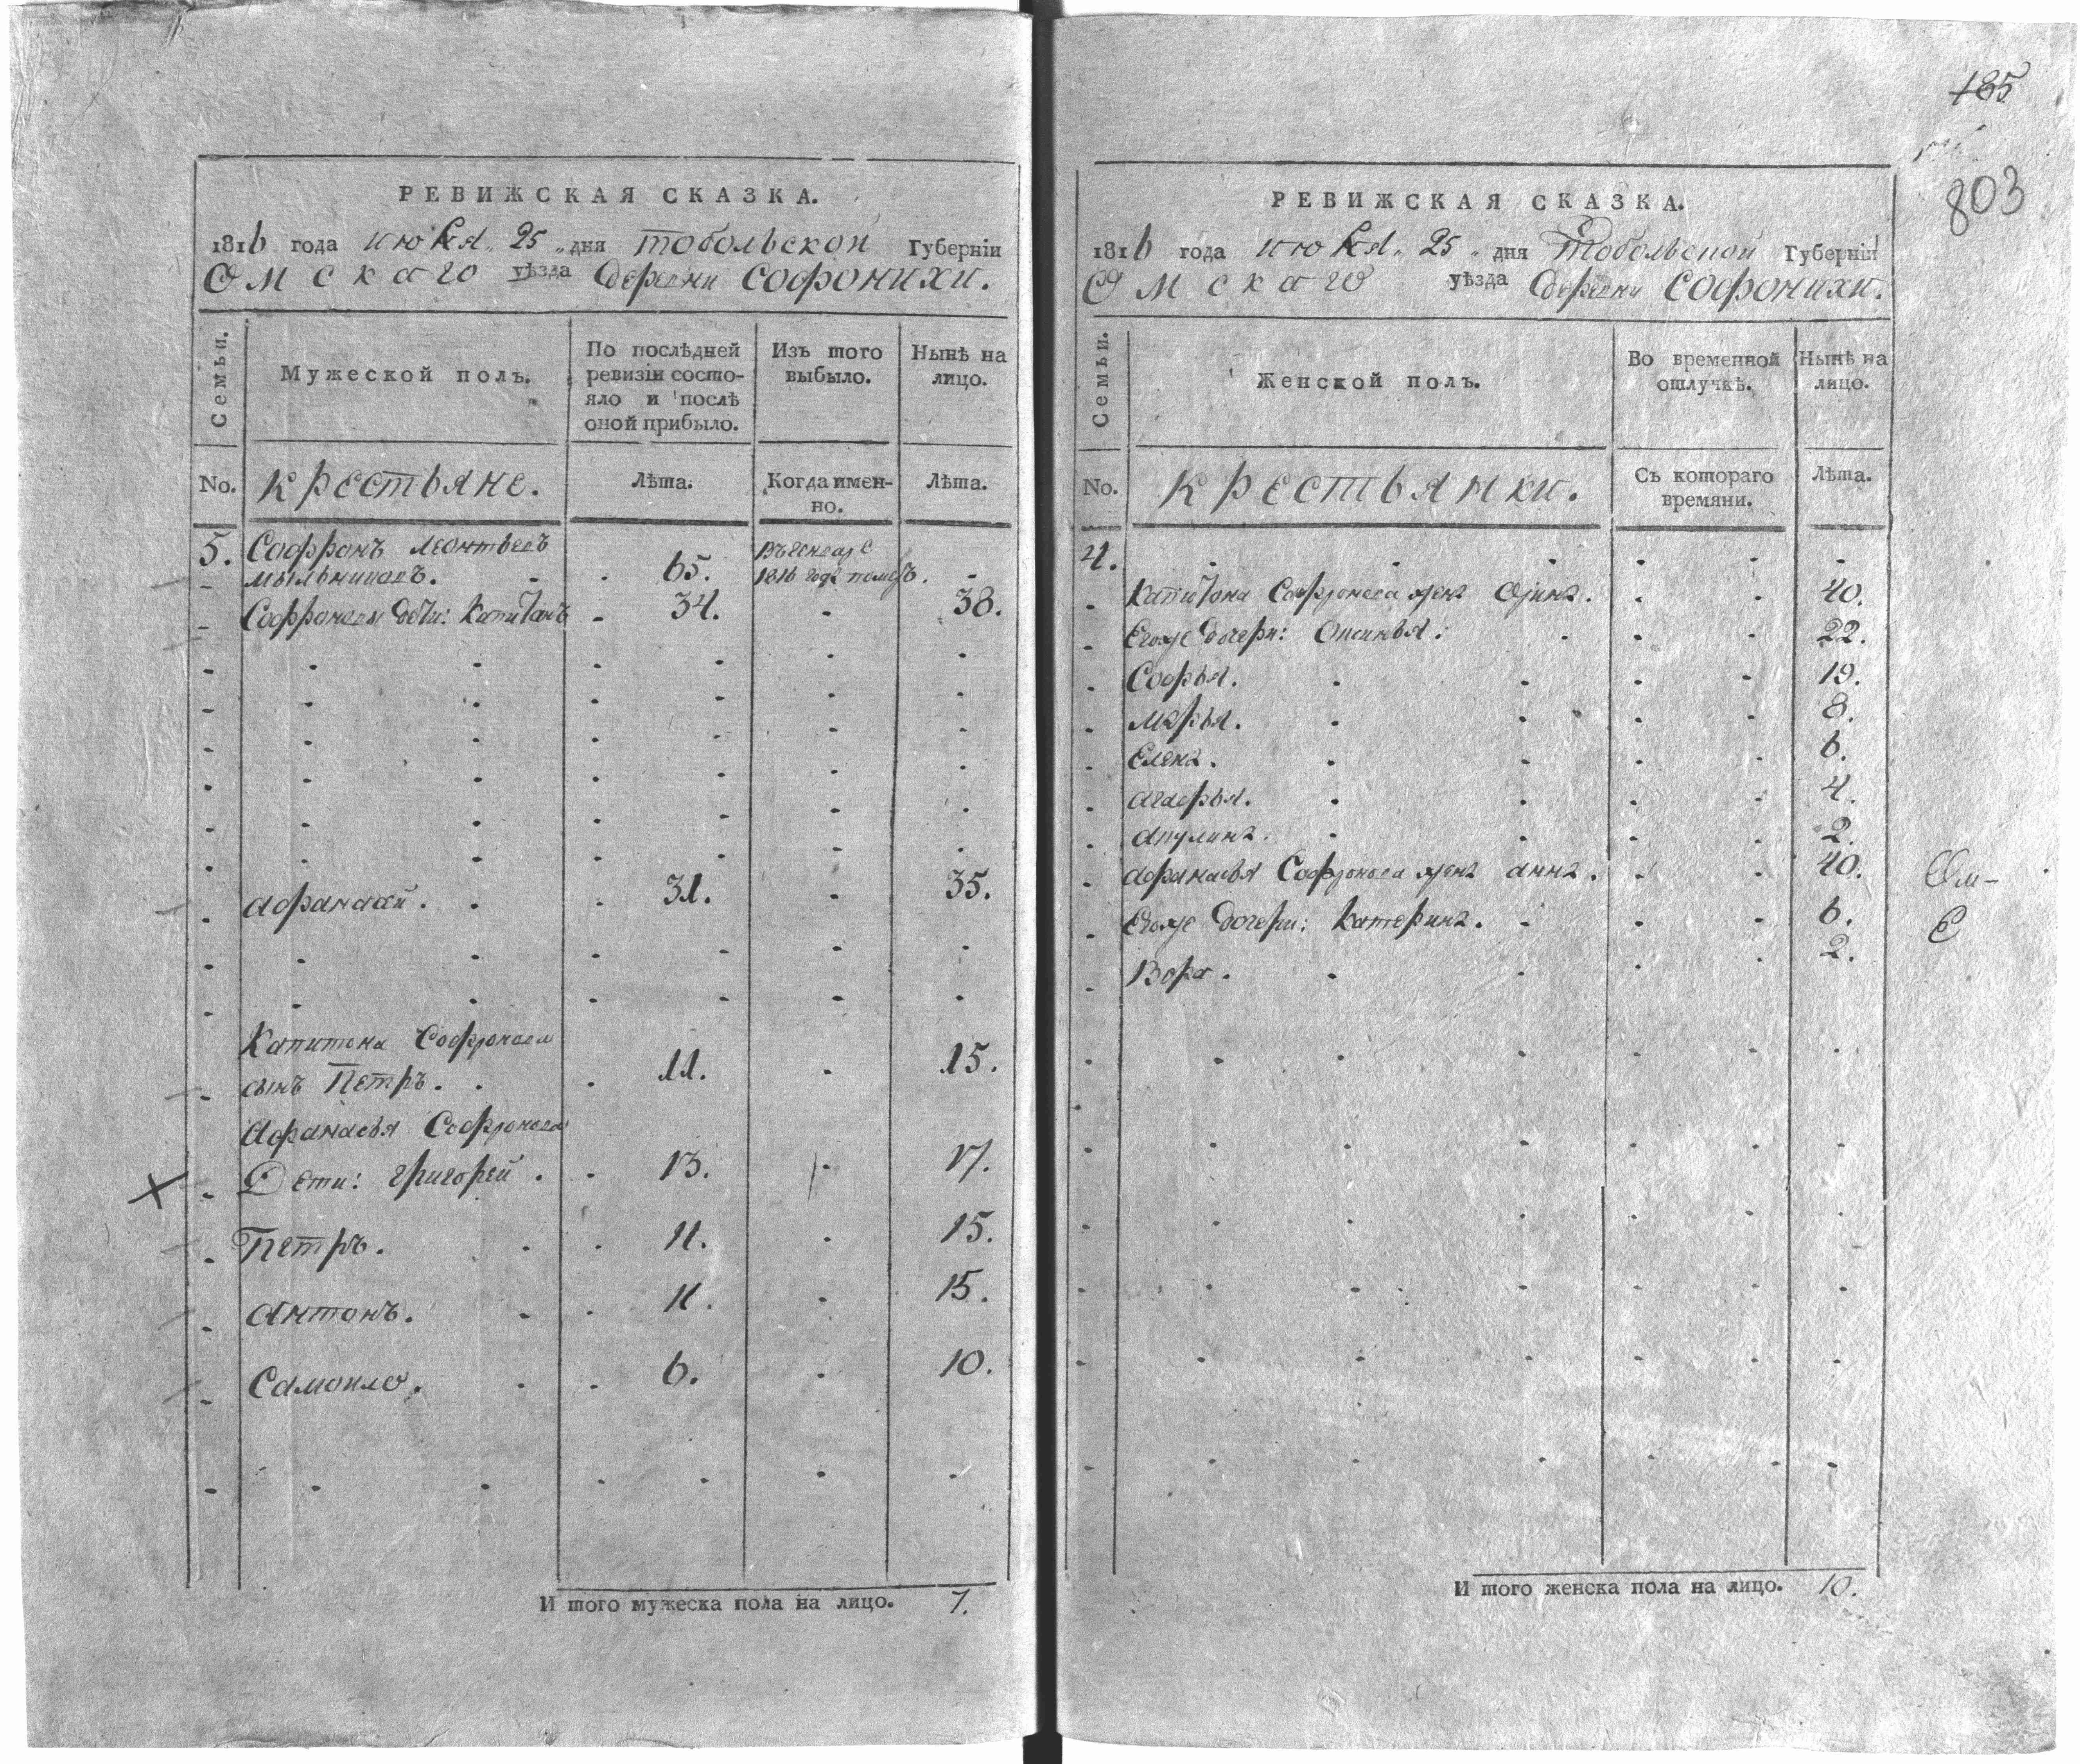 РЕВИЖСКАЯ СКАЗКА.
1816 года июля 25 дня Тобольской Губернiи
Омскаго уѣзда деревни Софонихи.
Семьи.
Мужеской полъ.
По послѣдней ревизiи состо-
яло и послѣ
оной прибыло.
Изъ того
выбыло.
Нынѣ на
лицо.
No. Крестьяне. Лѣта. Когда имен-
но. Лѣта.
5. Софронъ Леонтьевъ
Мыльниковъ. 65. 1816 года померъ.
Софроновы дѣти: Капитонъ 34. 38.
Афанасий. 31. 35.
Капитона Софронова
сынъ Петръ. 11. 15.
Афанасья Софронова
Дети: Григорей. 13. 17.
Петръ. 11. 15.
Антонъ. 11. 15.
Самойло. 6. 10.
И того мужеска пола на лицо. 7.
185
803
РЕВИЖСКАЯ СКАЗКА.
1816 года июля 25 дня Тобольской Губернiи
Омскаго уѣзда деревни Софонихи.
Семьи.
Женской полъ.
Во временной
отлучкѣ.
Нынѣ на
лицо.
No. Крестьянки. Съ котораго
времяни. Лѣта.
Капитона Софронова жена 40.
Егоже дочери: 22.
Софья. 19.
Марья. 8.
Елена. 6.
Агафья. 4.
Акулина. 2.
Афанасья Софронова жена Анна. 40.
Егоже дочери: Катерина. 6.
Вера. 2.
И того женска пола на лицо. 10.